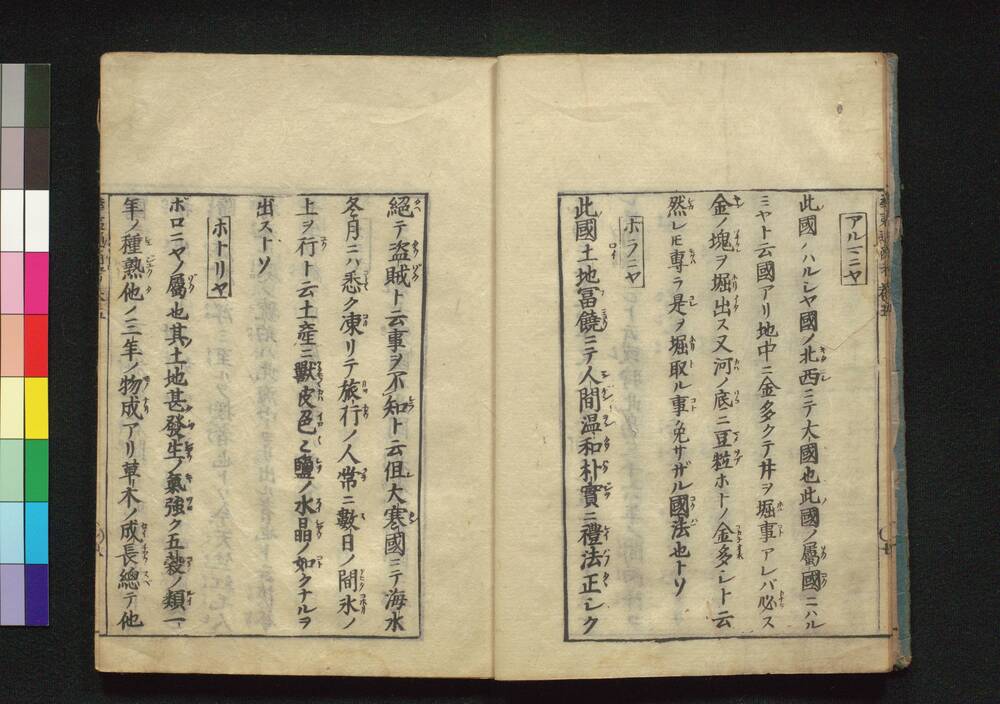 アルマニヤ
此國ノハルシヤ國ノ北西ニテ大國也此國ノ屬國ニハル
ミヤト云國アリ地中ニ金多クテ井ヲ堀事アレバ必ス
金ノ塊ヲ堀出ス又河ノ底ニ豆粒ホトノ金多シト云
然レ𪜈専ラ是ヲ堀取ル事免サザル國法也トソ
ホラニヤ
此國土地冨饒ニテ人間温和朴實ニ禮法正シク
絕テ盗賊ト云事ヲ不知ト云但大寒國ニテ海水
冬月ニハ悉ク凍リテ旅行ノ人常ニ數日ノ間氷ノ
上ヲ行ト云土産ニ獸皮色〻鹽ノ水晶ノ如クナルヲ
出ストソ
ホトリヤ
ボロニヤノ屬也其土地甚發生ノ氣強ク五穀ノ類一
年ノ種熟他ノ三年ノ物成アリ草木ノ成長總テ他